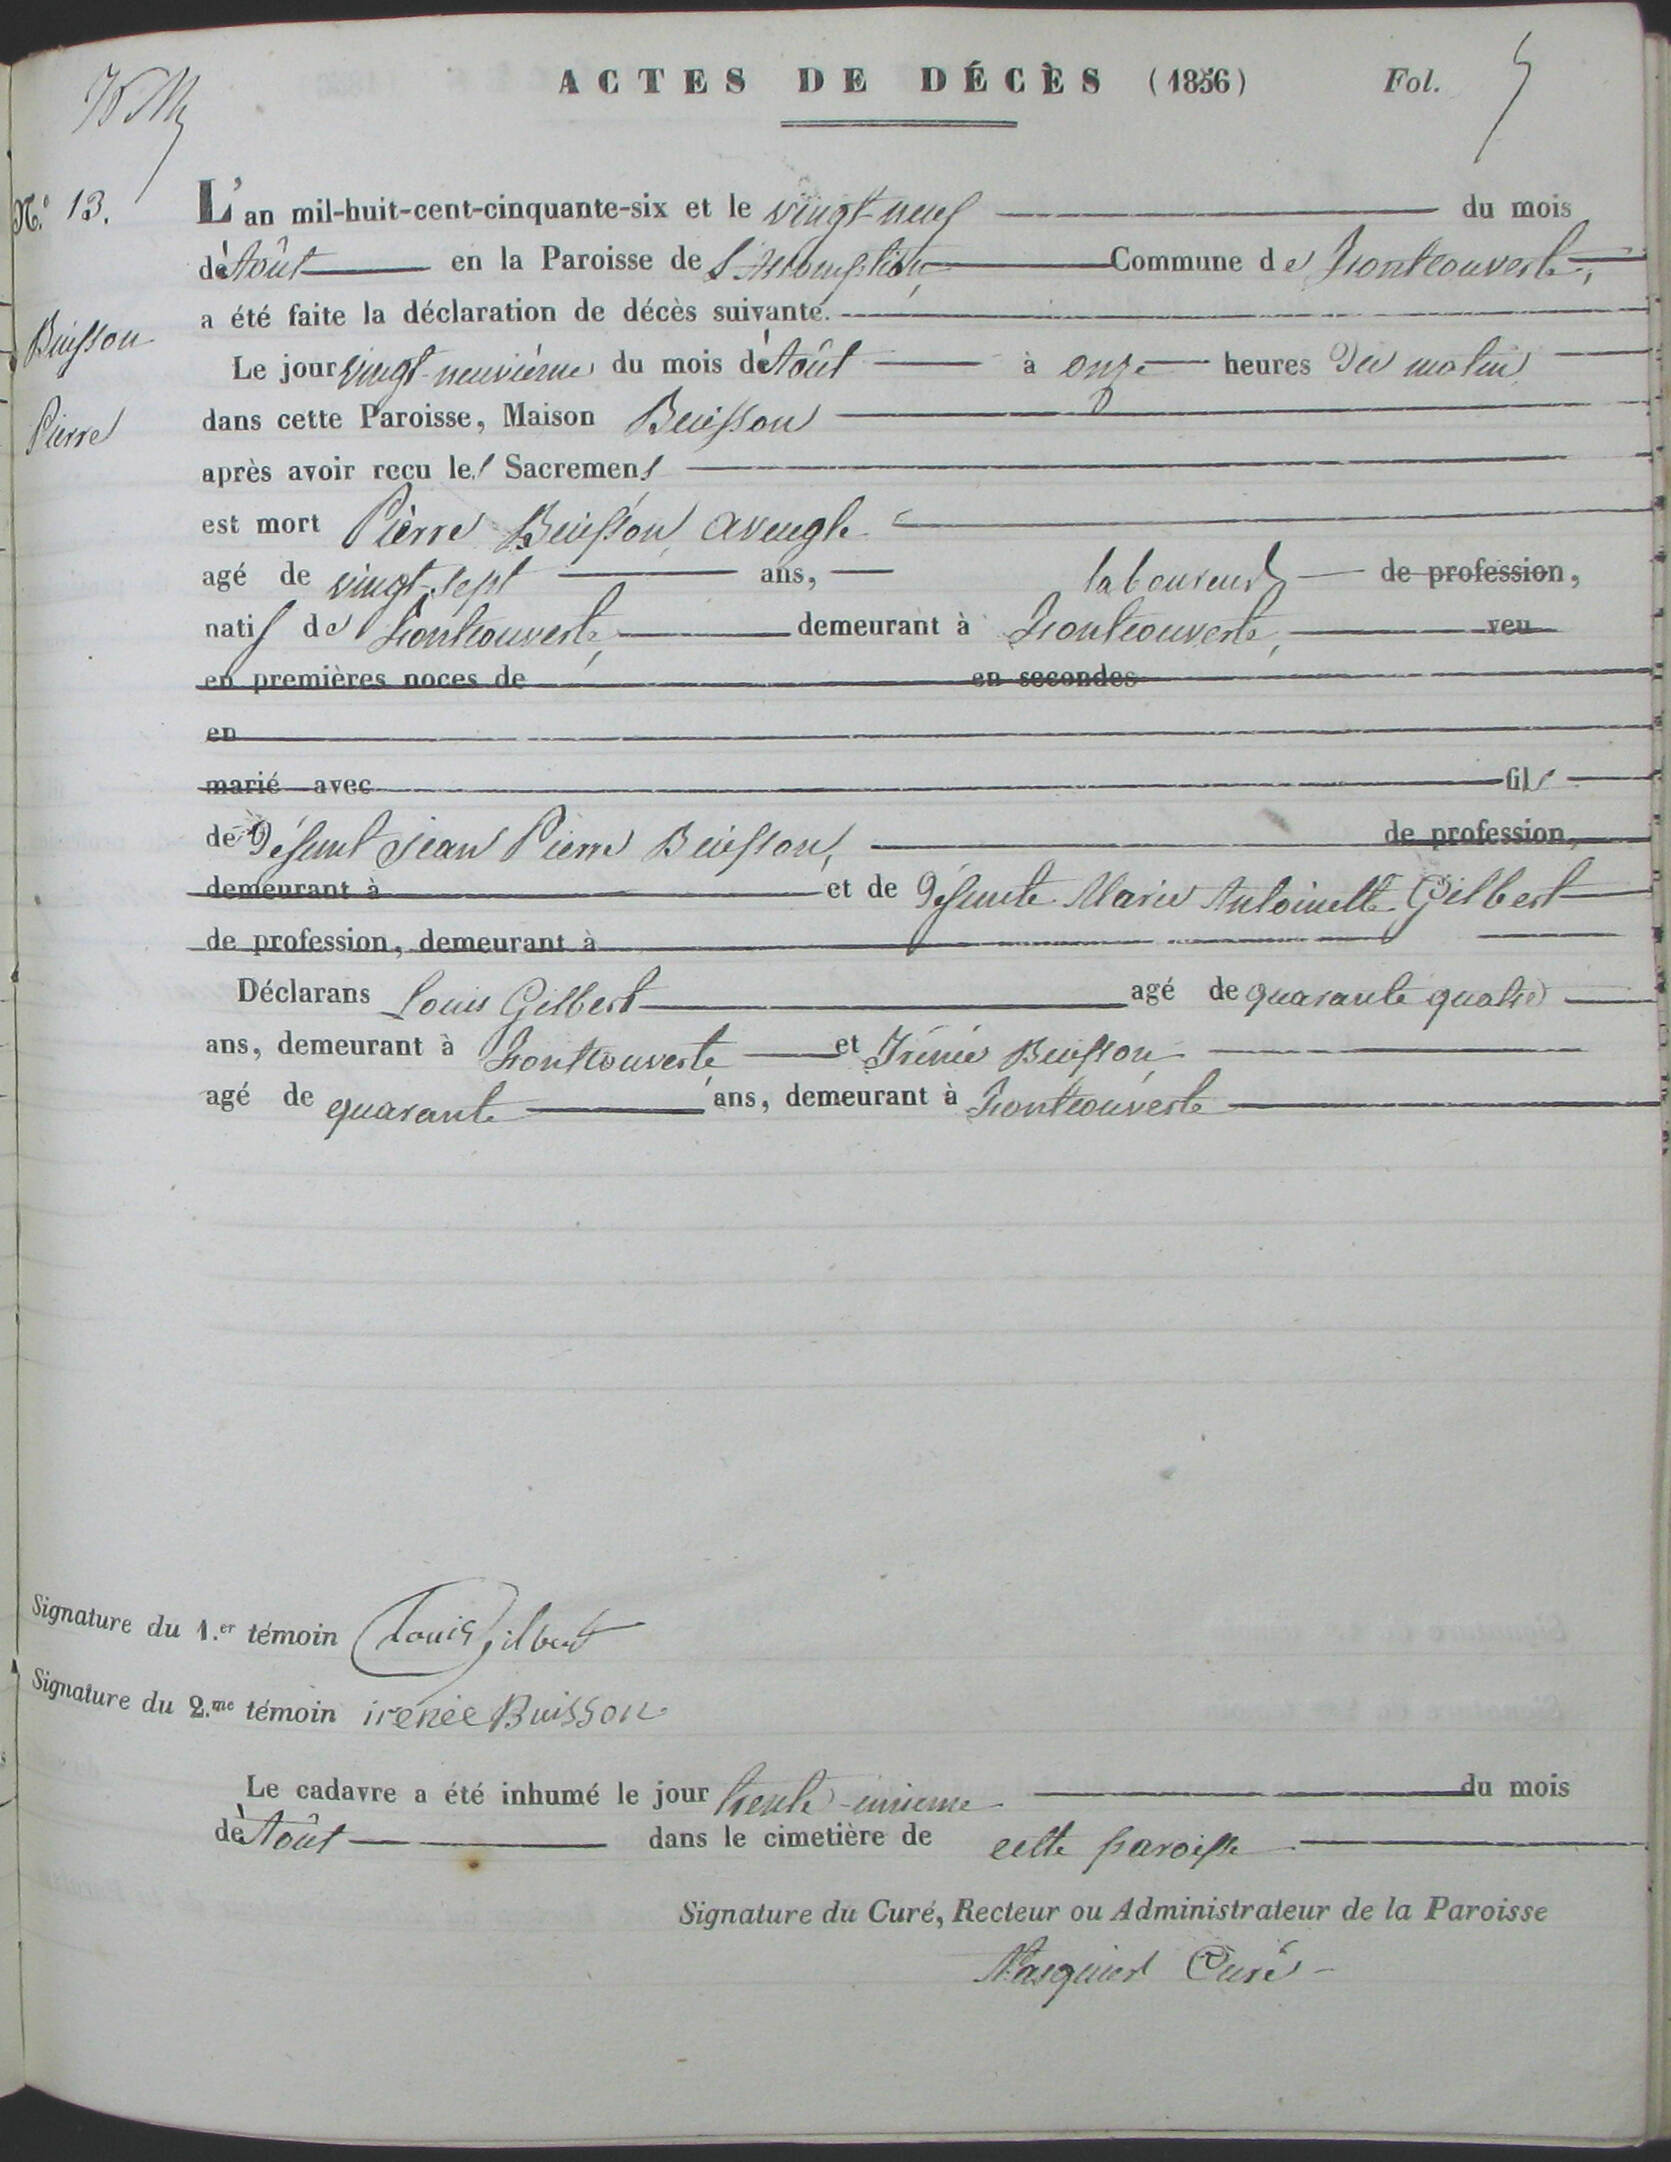 ACTES DE DÉCÈS (1856) Fol. 5
N.º 13.
Buisson
Pierre
L'an mil-huit-cent-cinquante-six et le vingt-neuf du mois
d'Août en la Paroisse de l'Assomption, Commune de Montcouvert,
a été faite la déclaration de décès suivante.
Le jour vingt-neuvième du mois d'Août à onze heures du matin
dans cette Paroisse, Maison Buisson
après avoir reçu les Sacremens
est mort Pierre Buisson, aveugle
agé de vingt-sept ans, laboureur de profession,
natif de demeurant à veu
en premières noces de en secondes
en
marié avec fils
de défunt Jean Pierre Buisson, de profession,
demeurant à et de défunte Marie Antoinette Gilbert
de profession, demeurant à
Déclarans Louis Gilbert agé de quarante quatre
ans, demeurant à et Irénée Buisson
agé de quarante ans, demeurant à
Signature du 1.er témoin Louis Gilbert
Signature du 2.me témoin irenée Buisson
Le cadavre a été inhumé le jour trente-unieme du mois
d'Août dans le cimetière de cette paroisse
Signature du Curé, Recteur ou Administrateur de la Paroisse
Pasquier Curé